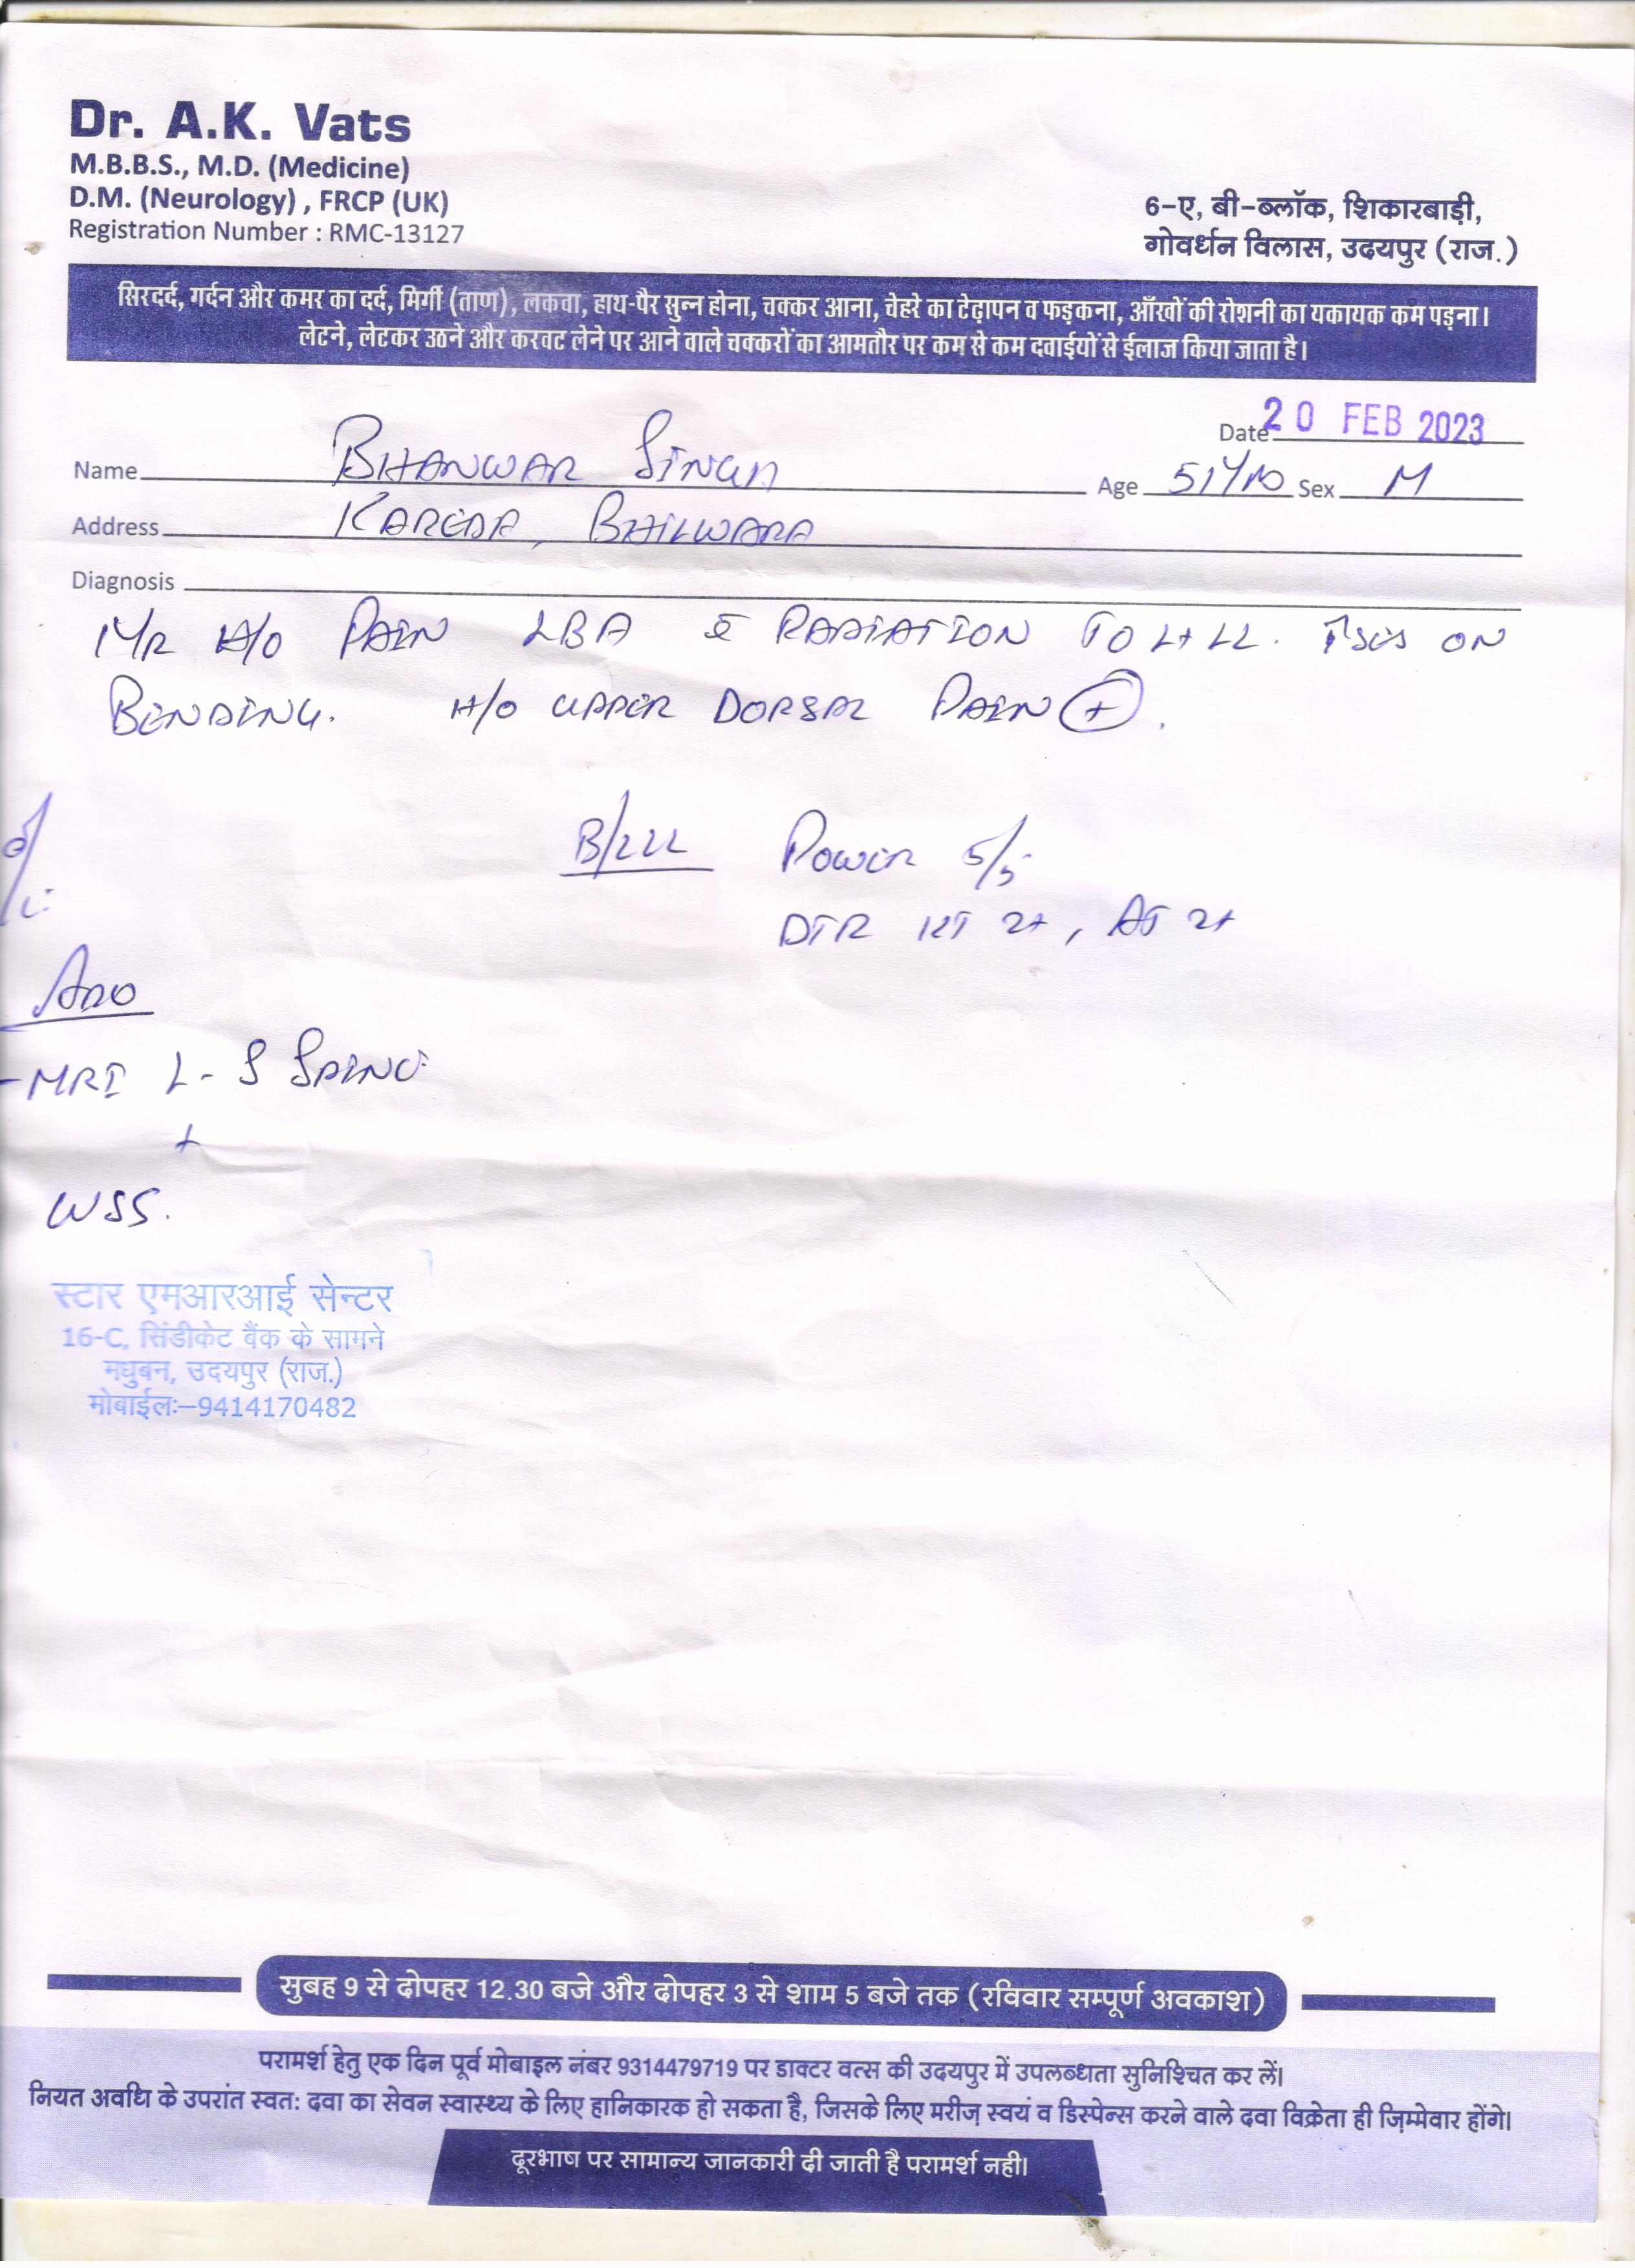 Dr. A.K. Vats
M.B.B.S., M.D. (Medicine)
D.M. (Neurology) , FRCP (UK)
Registration Number : RMC-13127
6-ए, बी-ब्लॉक, शिकारबाड़ी,
गोवर्धन विलास, उदयपुर (राज.)
सिरदर्द, गर्दन और कमर का दर्द, मिर्गी (ताण), लकवा, हाथ-पैर सुन्न होना, चक्कर आना, चेहरे का टेढ़ापन व फड़कना, आँखों की रोशनी का यकायक कम पड़ना।
लेटने, लेटकर उठने और करवट लेने पर आने वाले चक्करों का आमतौर पर कम से कम दवाईयों से ईलाज किया जाता है।
Date 20 FEB 2023
Name BHANWAR SINGH Age 51 Sex M
Address KAREDA, BHILWARA
Diagnosis
H/O PAIN LBA RADIATION TO ON
BENDING. H/O UPPER DORSAL PAIN +.
POWER 5/5
DTR KT 2+, AT 2+
MRI L-S SPINE
+
WSS.
स्टार एमआरआई सेन्टर
16-C, सिंडीकेट बैंक के सामने
मधुबन, उदयपुर (राज.)
मोबाईलः–9414170482
सुबह 9 से दोपहर 12.30 बजे और दोपहर 3 से शाम 5 बजे तक (रविवार सम्पूर्ण अवकाश)
परामर्श हेतु एक दिन पूर्व मोबाइल नंबर 9314479719 पर डाक्टर वत्स की उदयपुर में उपलब्धता सुनिश्चित कर लें।
नियत अवधि के उपरांत स्वत: दवा का सेवन स्वास्थ्य के लिए हानिकारक हो सकता है, जिसके लिए मरीज़ स्वयं व डिस्पेन्स करने वाले दवा विक्रेता ही ज़िम्मेवार होंगे।
दूरभाष पर सामान्य जानकारी दी जाती है परामर्श नही।